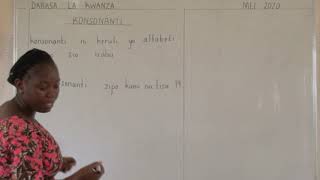 DARASA LA KWANZA
MEI 2020
KONSONANTI
konsonanti ni herufi za alfabeti
zio irabu
zipo kumi na tisa 19.